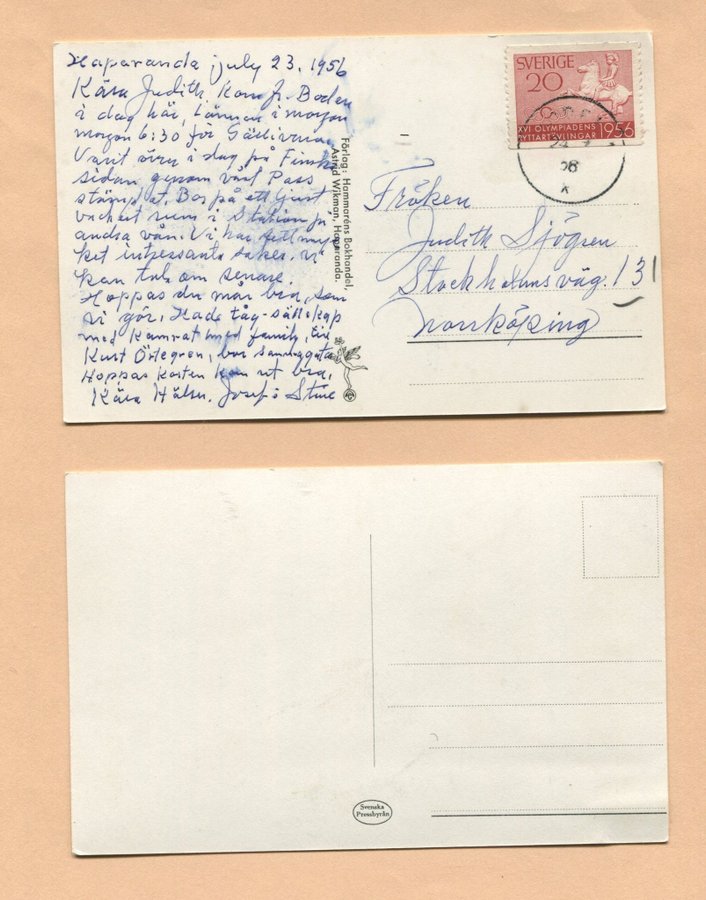 Haparanda july 23. 1956
Kära Judith. Kom fr. Boden
i dag här, lämnar i morgon
morgon 6:30 för Gällivara
Varit över i dag på Finska
sidan genom vårt Pass
stämplat. Bor på ett
vackert rum i Station på
andra vån. Vi har sett myc
ket intressanta saker. vi
kan tala om senare.
Hoppas du mår bra, som
vi gör. Hade tåg-sällskap
med Kamrat med familj, till
Kurt Östegren, bor
Hoppas Korten kom ut bra.
Kära Hälsn. Josef o Stine
Förlag: Hammaréns Bokhandel,
Astrid Wikman, Haparanda.
SVERIGE
20
XVI OLYMPIADENS
RYTTARTÄVLINGAR 1956
24 7
56
K
Fröken
Judith Sjögren
Stockholmsväg. 13
Norrköping
Svenska
Pressbyrån